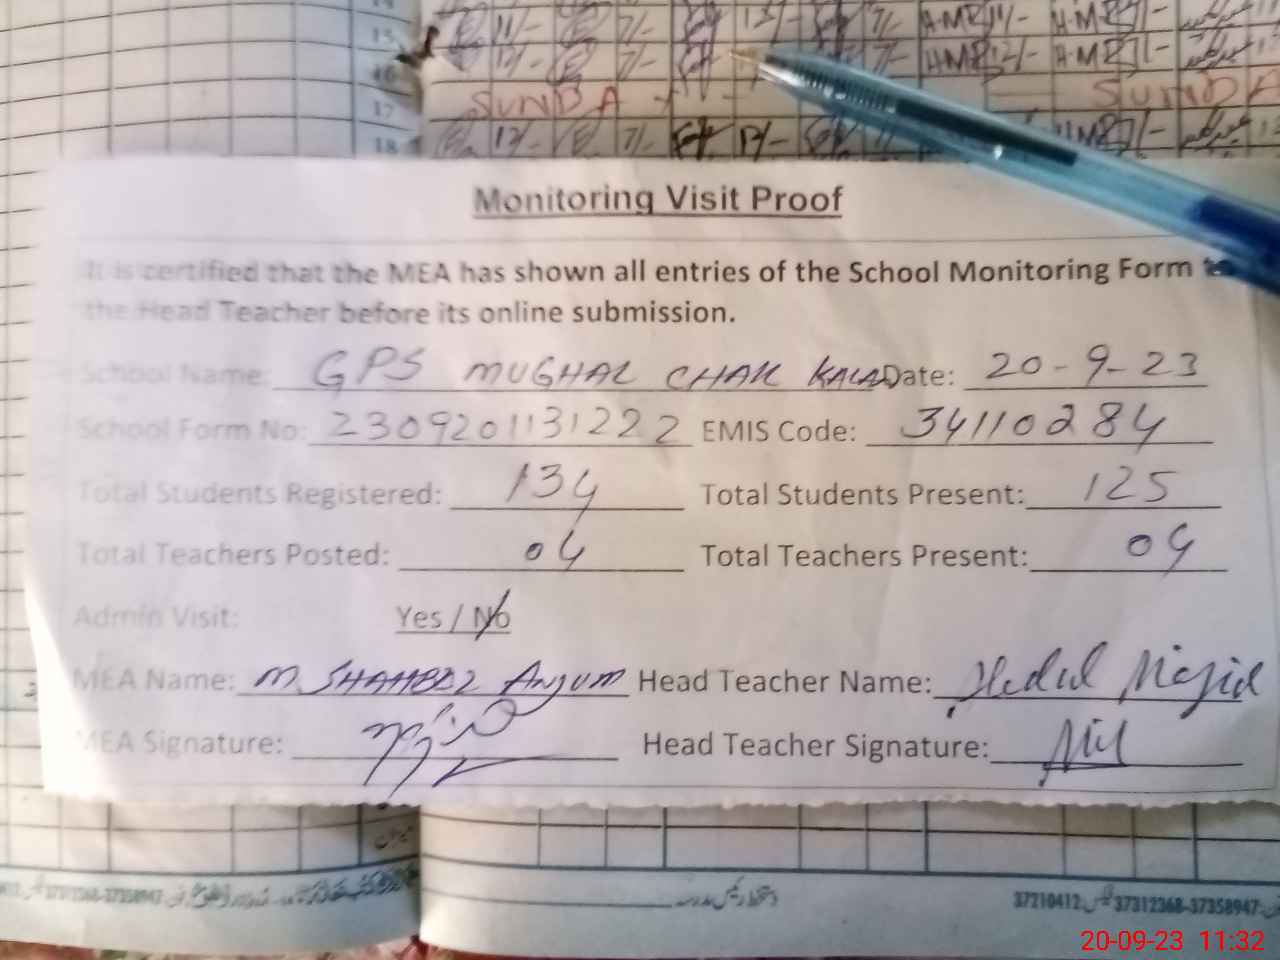 15 11/- 7/- 13/- 7/- H.MR 11/- H.MR 7/-
16 12/- 7/- 7/- HMR 12/- H.MR 7/-
17 SUNDAY SUNDA
18 12/- 7/- 12/- 7/-
Monitoring Visit Proof
It is certified that the MEA has shown all entries of the School Monitoring Form to
the Head Teacher before its online submission.
School Name: GPS MUGHAL CHAK KALA Date: 20-9-23
School Form No: 2309201131222 EMIS Code: 34110284
Total Students Registered: 134 Total Students Present: 125
Total Teachers Posted: 04 Total Teachers Present: 04
Admin Visit: Yes / No
MEA Name: M. SHAHBAZ Anjum Head Teacher Name: Abdul Majid
MEA Signature: Head Teacher Signature:
37210412 37312368-37358947
20-09-23 11:32